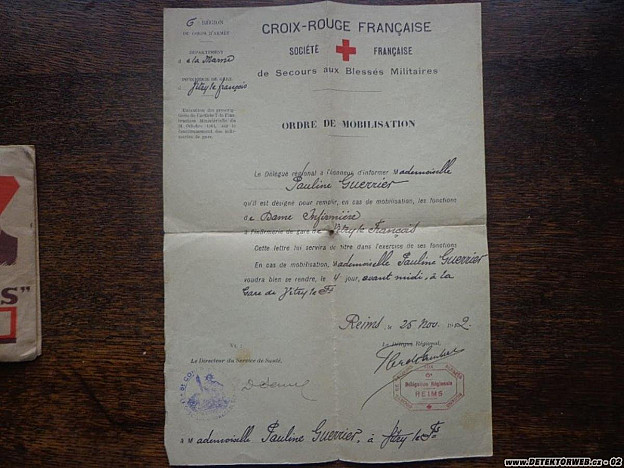 6e RÉGION
DE CORPS D'ARMÉE
DÉPARTEMENT
de la Marne
INFIRMERIE DE GARE
Vitry le françois
CROIX-ROUGE FRANÇAISE
SOCIÉTÉ FRANÇAISE
de Secours aux Blessés Militaires
ORDRE DE MOBILISATION
Le Délégué régional a l'honneur d'informer Mademoiselle
Pauline Guerrier
qu'il est désigné pour remplir, en cas de mobilisation, les fonctions
de Dame Infirmière
à l'infirmerie de gare de Vitry le François
Cette lettre lui servira de titre dans l'exercice de ses fonctions
En cas de mobilisation, Mademoiselle Pauline Guerrier
voudra bien se rendre, le 4e jour, avant midi, à la
Gare de Vitry le Fs
Reims, le 25 Nov. 2
Le Délégué Régional,
Le Directeur du Service de Santé,
Délégation Régionale
REIMS
à Mademoiselle Pauline Guerrier, à Vitry le Fs
S"
www.DETEKTORWEB.cz - 02